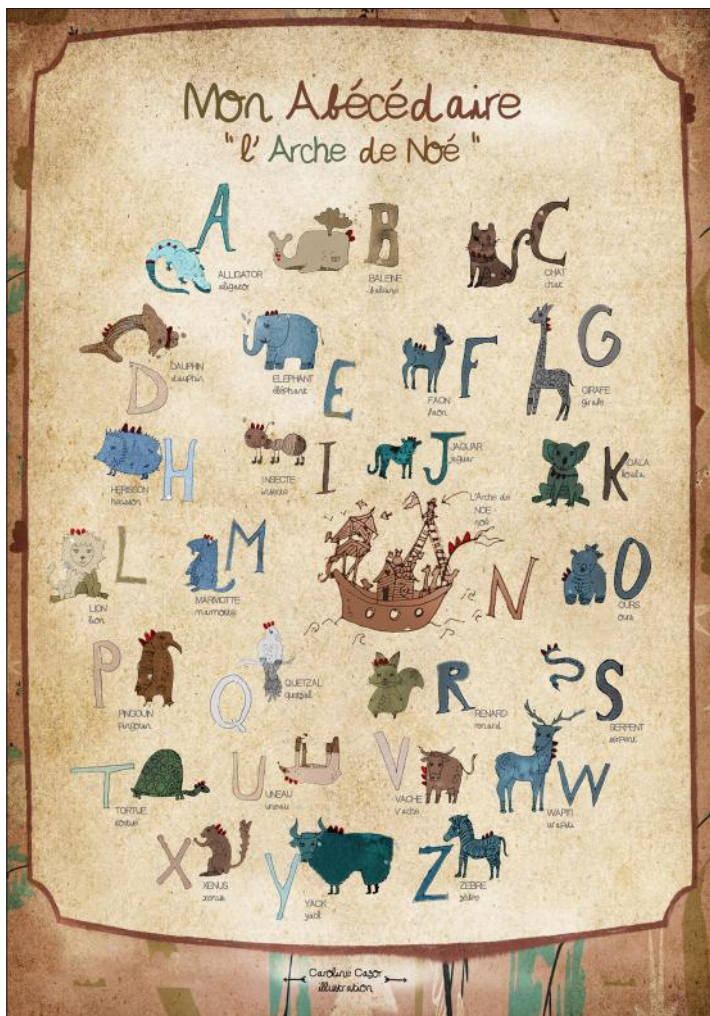 Mon Abécédaire
"l'Arche de Noé"
A
ALLIGATOR
aligator
B
BALEINE
baleine
C
CHAT
chat
D
DAUPHIN
dauphin
E
ELEPHANT
éléphant
F
FAON
faon
G
GIRAFE
girafe
H
HERISSON
hérisson
I
INSECTE
insecte
J
JAGUAR
jaguar
K
KOALA
koala
L
LION
lion
M
MARMOTTE
marmotte
L'Arche de
NOE -
noé
N
O
OURS
ours
P
PINGOUIN
pingouin
Q
QUETZAL
quetzal
R
RENARD
renard
S
SERPENT
serpent
T
TORTUE
tortue
U
UNEAU
uneau
V
VACHE
vache
W
WAPITI
wapiti
X
XENUS
xenus
Y
YACK
yack
Z
ZEBRE
zèbre
Caroline Casor
illustration